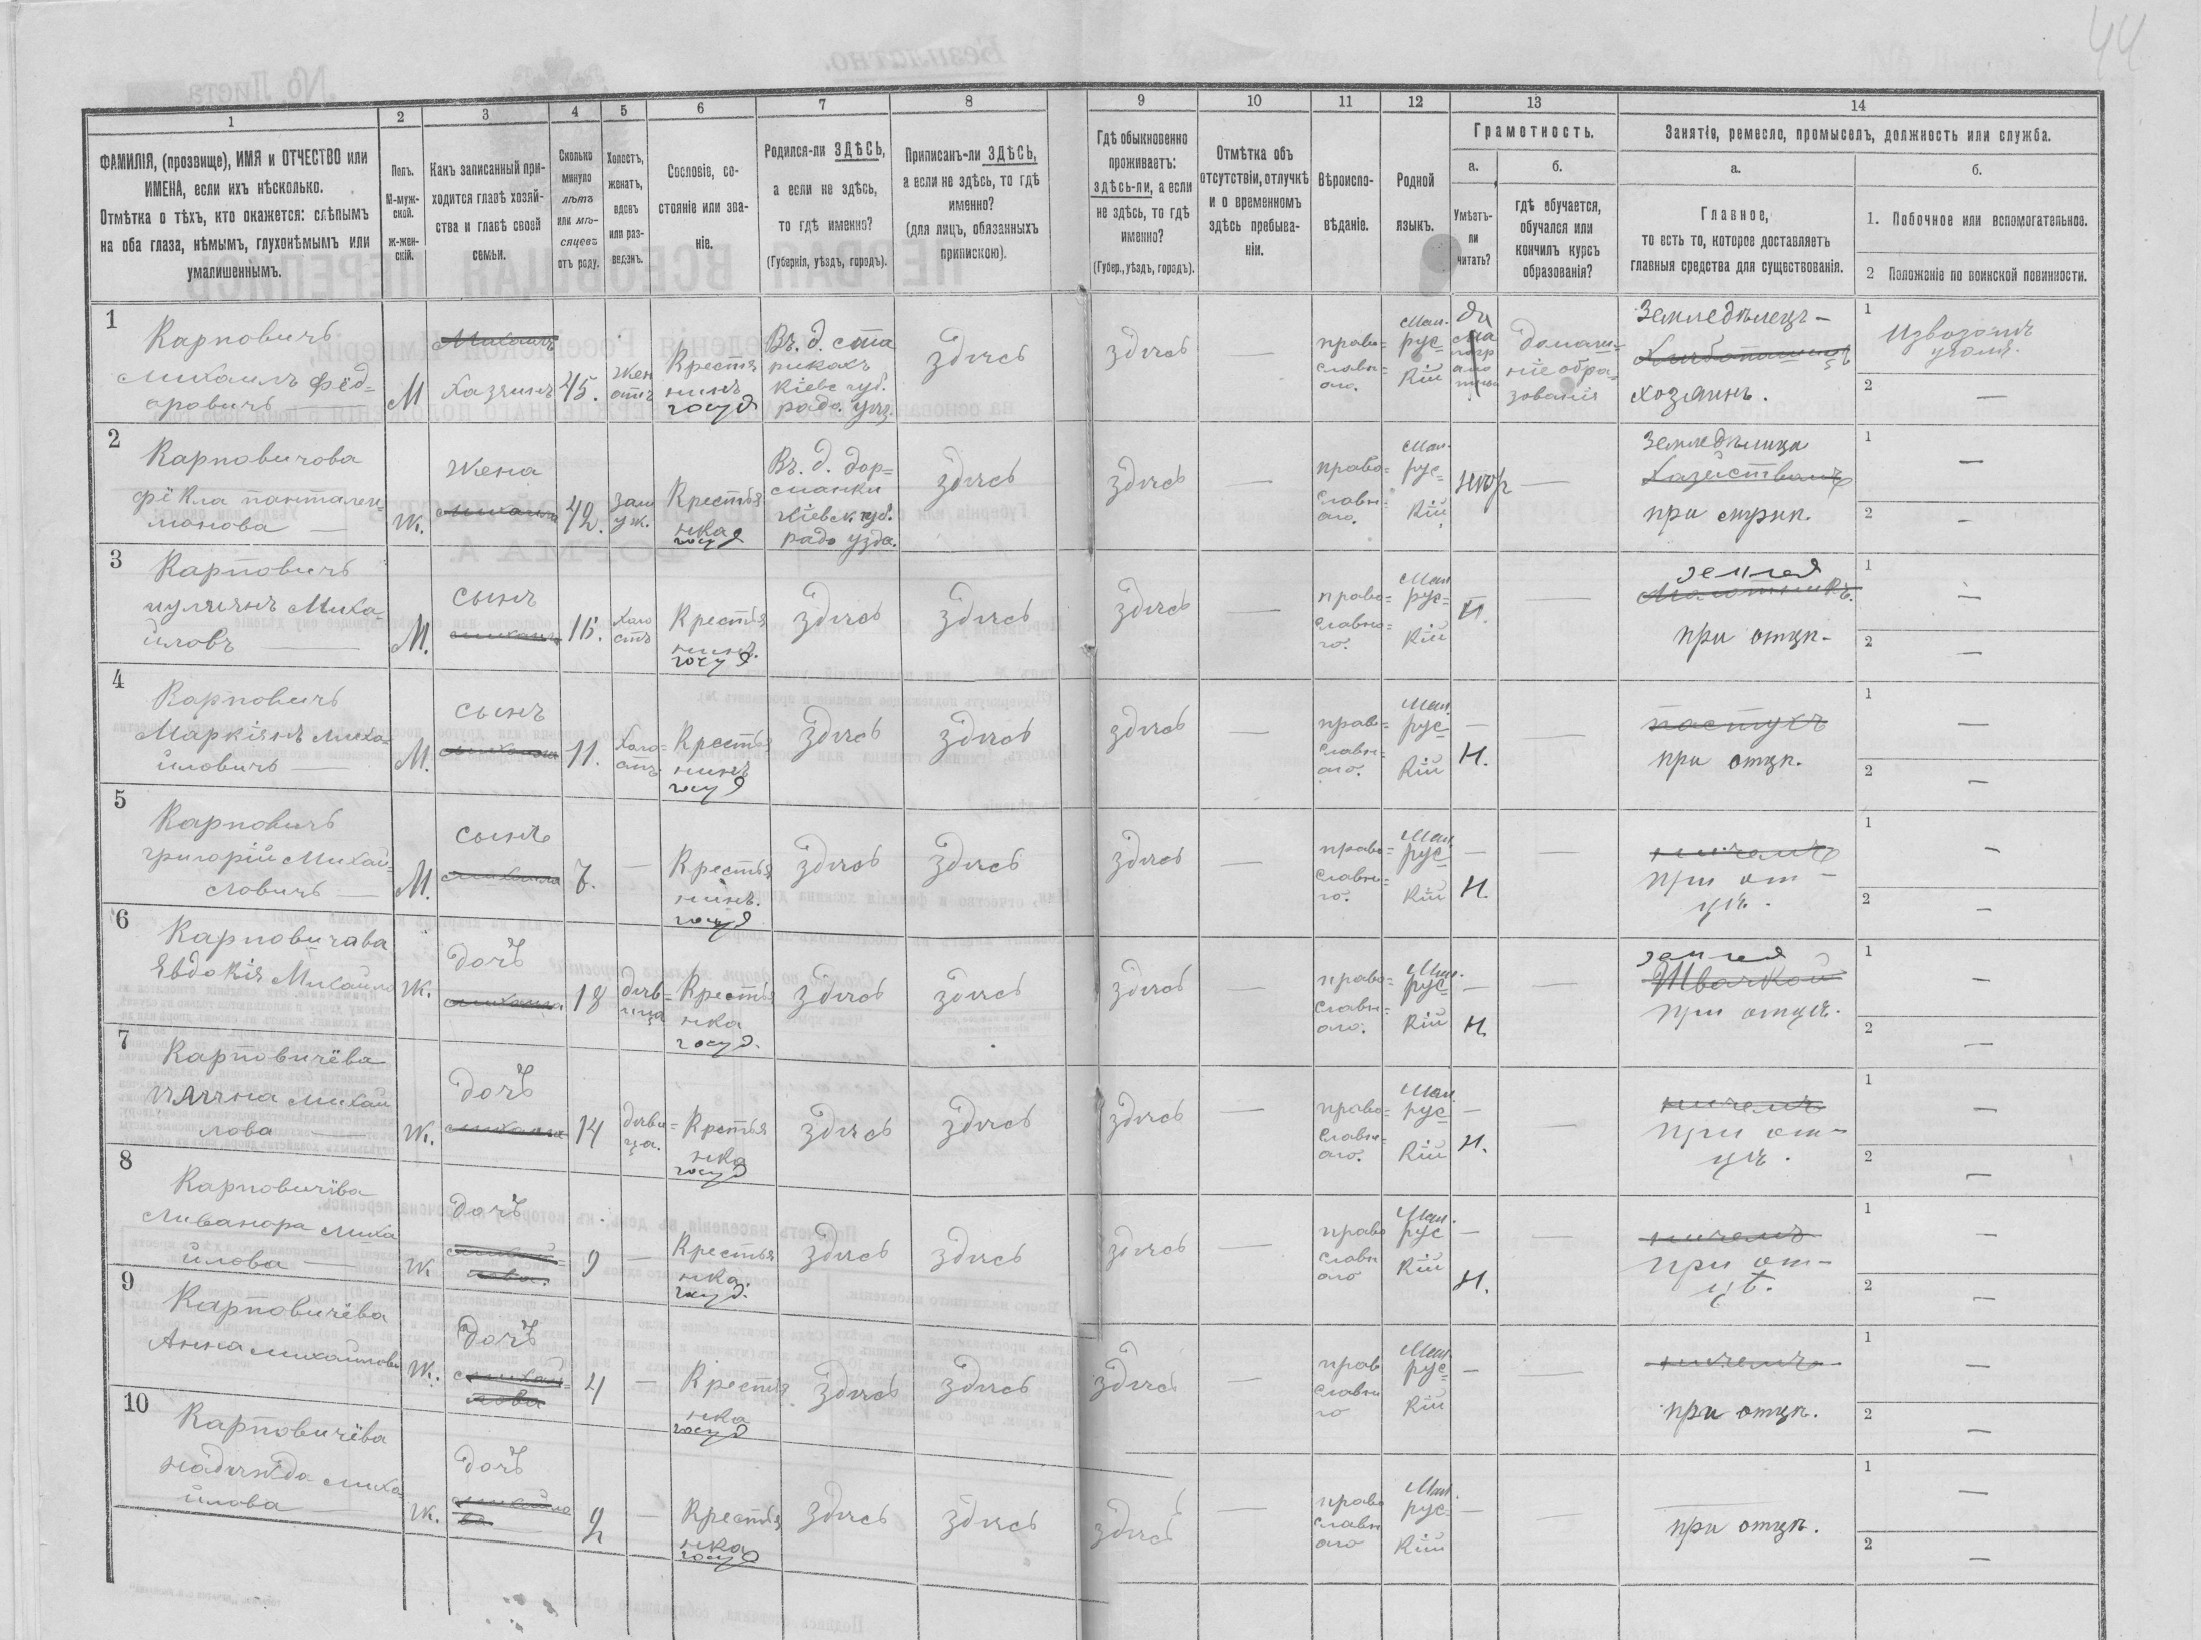 44
1
2
3
4
5
6
7
8
9
10
11
12
13
14
ФАМИЛІЯ, (прозвище), ИМЯ и ОТЧЕСТВО или
ИМЕНА, если ихъ нѣсколько.
Отмѣтка о тѣхъ, кто окажется: слѣпымъ
на оба глаза, нѣмымъ, глухонѣмымъ или
умалишеннымъ.
Полъ.
М-муж-
ской.
Ж-жен-
скій.
Какъ записанный при-
ходится главѣ хозяй-
ства и главѣ своей
семьи.
Сколько
минуло
лѣтъ
или мѣ-
сяцевъ
отъ роду.
Холостъ,
женатъ,
вдовъ
или раз-
веденъ.
Сословіе, со-
стояніе или зва-
ніе.
Родился-ли ЗДѢСЬ,
а если не здѣсь,
то гдѣ именно?
(Губернія, уѣздъ, городъ).
Приписанъ-ли ЗДѢСЬ,
а если не здѣсь, то гдѣ
именно?
(для лицъ, обязанныхъ
припискою).
Гдѣ обыкновенно
проживаетъ:
здѣсь-ли, а если
не здѣсь, то гдѣ
именно?
(Губер., уѣздъ, городъ).
Отмѣтка объ
отсутствіи, отлучкѣ
и о временномъ
здѣсь пребыва-
ніи.
Вѣроиспо-
вѣданіе.
Родной
языкъ.
Грамотность.
а.
Умѣетъ-
ли
читать?
б.
гдѣ обучается,
обучался или
кончилъ курсъ
образованія?
Занятіе, ремесло, промыселъ, должность или служба.
а.
Главное,
то есть то, которое доставляетъ
главныя средства для существованія.
б.
1. Побочное или вспомогательное.
2 Положеніе по воинской повинности.
1
Карповичъ
Михаилъ Фёд-
оровичъ
М
Хазяинъ
45.
Жен
атъ
Крестья
нинъ
госуд
Въ. д. ста
рикахъ
Кіевс губ.
радо. уѣз.
здѣсь
здѣсь
—
право=
славн=
аго.
Мал.
рус=
кій
да
домаш-
ніе обра-
зованія
Земледѣлецъ-
хозяинъ.
1
Извозомъ
2
—
2
Карповичова
Фёкла панталеи-
монова
Ж.
Жена
42.
Зам
уж.
Крестья
нка
госуд
Въ. д.
Кіевск губ.
радо узда.
здѣсь
здѣсь
—
право=
славн=
аго.
Мал.
рус=
кій
—
Земледѣлица
при
1
—
2
—
3
Карповичъ
Миха
йловъ
М.
сынъ
16.
Холо
стъ
Крестья
нинъ.
госуд
здѣсь
здѣсь
здѣсь
—
право=
славно=
го.
Мал
рус=
кій
Н.
—
землед
при отцѣ-
1
—
2
—
4
Карповичъ
Маркіянъ Миха-
йловичъ
М.
сынъ
11.
Холо=
стъ
Крестья
нинъ
госуд
здѣсь
здѣсь
здѣсь
—
право=
славн=
аго.
Мал.
рус=
кій
—
Н.
—
пастухъ
при отцѣ.
1
—
2
—
5
Карповичъ
григорій Михай-
ловичъ
М.
сынъ
7.
—
Крестья
нинъ.
госуд
здѣсь
здѣсь
здѣсь
—
право=
славн=
го.
Мал.
рус=
кій
—
Н.
—
ничемъ
при от-
цѣ.
1
—
2
—
6
Карповичава
Евдокія Михайло
Ж.
дочь
18
дѣв-
ица
Крестья
нка
госуд.
здѣсь
здѣсь
здѣсь
—
право=
славн=
аго.
Мал.
рус=
кій
—
Н.
—
землед
Швачкой
при отцѣ.
1
—
2
—
7
Карповичёва
Михай
лова
Ж.
дочь
14
дѣви=
ца.
Кретья
нка
госуд
здѣсь
здѣсь
здѣсь
—
право=
славн=
аго.
Мал.
рус=
кій
—
Н.
—
ничемъ
при от-
цѣ.
1
—
2
—
8
Карповичёва
Миха
йлова
Ж
дочь
9
—
Крестья
нка.
госуд.
здѣсь
здѣсь
здѣсь
—
право
славн
аго
Мал.
рус
кій
—
Н.
—
ничемъ
при от-
цѣ.
1
—
2
—
9
Карповичёва
Анна Михайлова
Ж.
дочь
4
—
Крестья
нка
госуд
здѣсь
здѣсь
здѣсь
—
прав
славн
го
Мал.
рус=
кій
—
—
ничемъ
при отцѣ.
1
—
2
—
10
Карповичёва
надѣжда Миха
йлова
Ж.
дочь
2
—
Крестья
нка
госуд
здѣсь
здѣсь
здѣсь
—
право
славн
аго
Мал.
рус=
кій
—
—
при отцѣ.
1
—
2
—